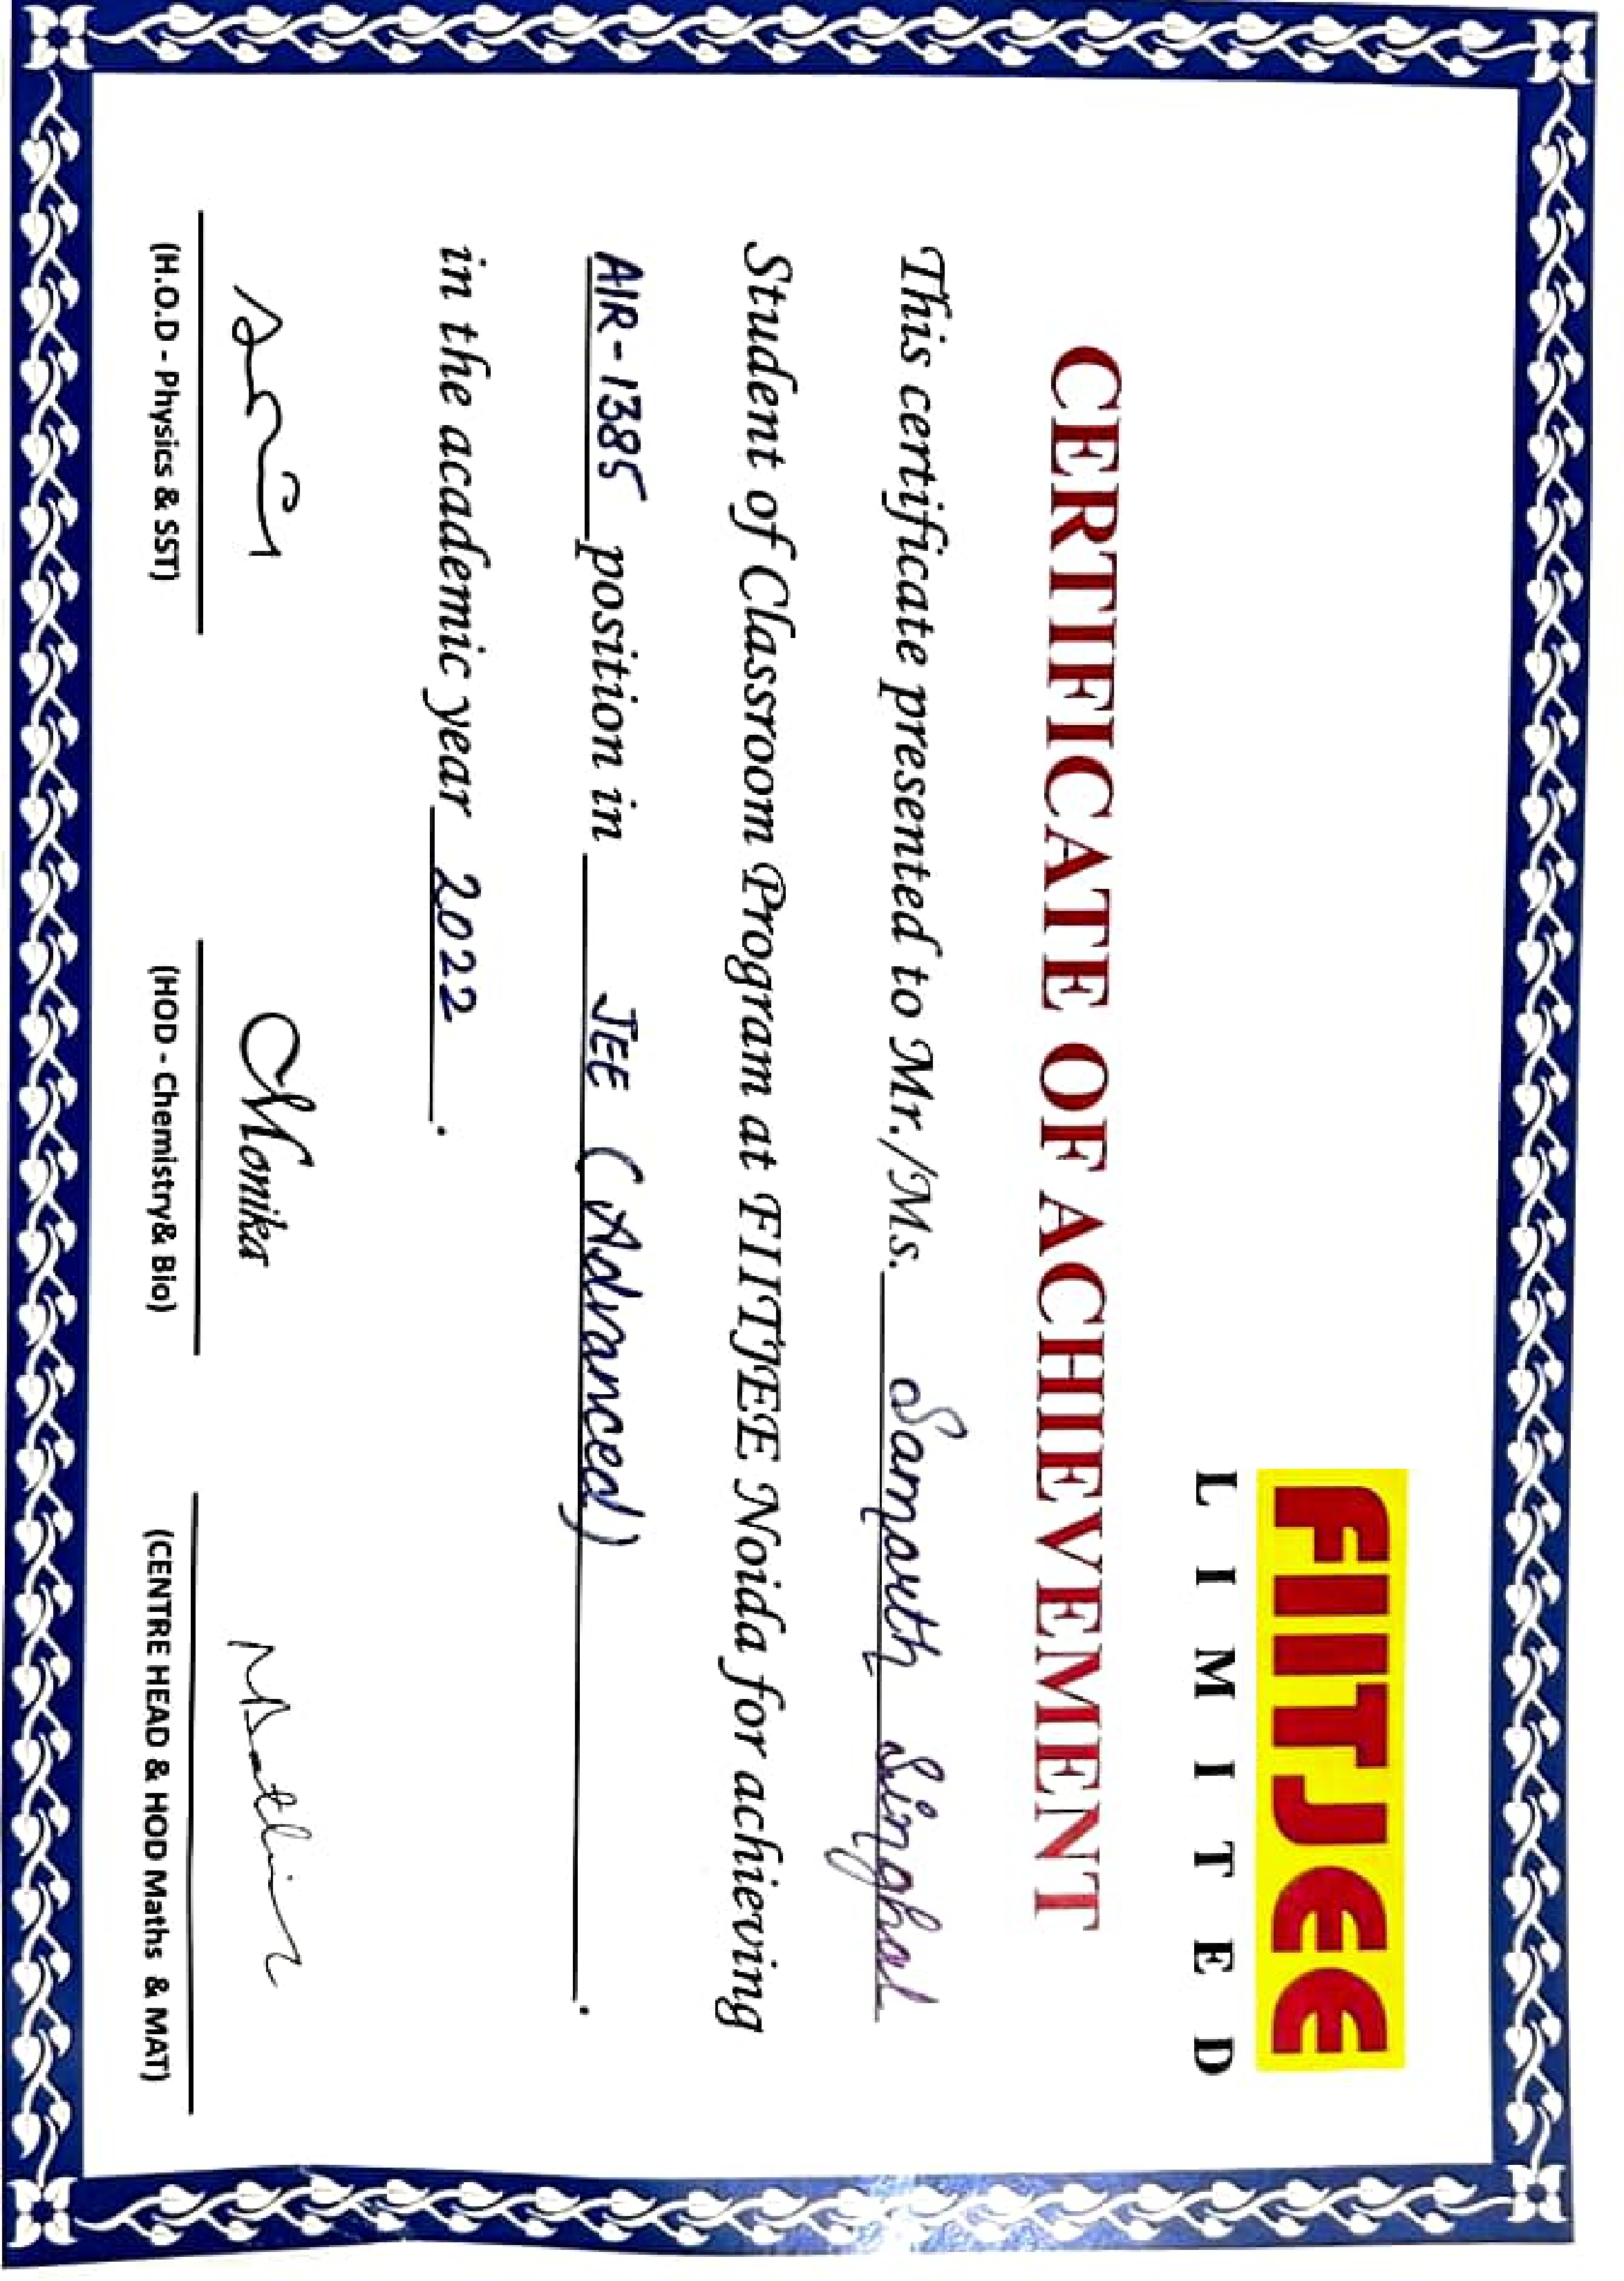 FIITJEE
LIMITED
CERTIFICATE OF ACHIEVEMENT
This certificate presented to Mr./Ms. Samarth Singhal
Student of Classroom Program at FIITJEE Noida for achieving
AIR-1385 position in JEE (Advanced).
in the academic year 2022.
Monika
(H.O.D - Physics & SST) (HOD - Chemistry& Bio) (CENTRE HEAD & HOD Maths & MAT)